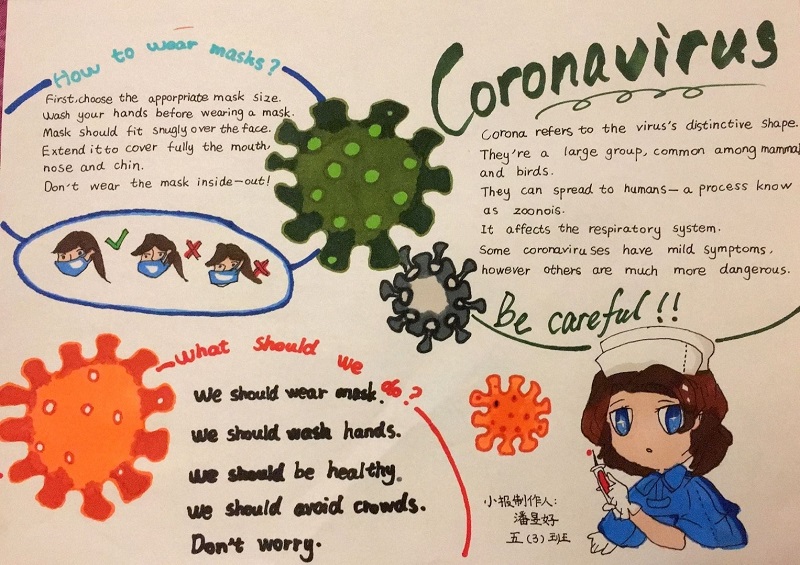 How to wear masks?
First, choose the apporpriate mask size.
Wash your hands before wearing a mask.
Mask should fit snugly over the face.
Extend it to cover fully the mouth,
nose and chin.
Don't wear the mask inside-out!
Coronavirus
Corona refers to the virus's distinctive shape.
They're a large group, common among mammal
and birds.
They can spread to humans—a process know
as zoonois.
It affects the respiratory system.
Some coronaviruses have mild symptoms,
however others are much more dangerous.
Be careful!!
What should we do?
We should wear mask.
We should wash hands.
We should be healthy.
We should avoid crowds.
Don't worry.
小报制作人:
潘昱好
五(3)班